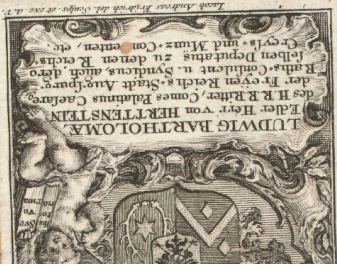 LUDWIG BARTHOLOMÆ,
Edler Herr von HERTTENSTEIN
des H.R.R. Ritter, Comes Palatinus Caesare9
der Freyen Reichs-Stadt Augspurg
Raths-Consulent u. Syndicus, auch dero
selben Deputatus zu denen Reichs-
Creyß- und Munz-Conventen, etc.
Iacob Andreas Fridrich del. Sculps. et exc. A. V.